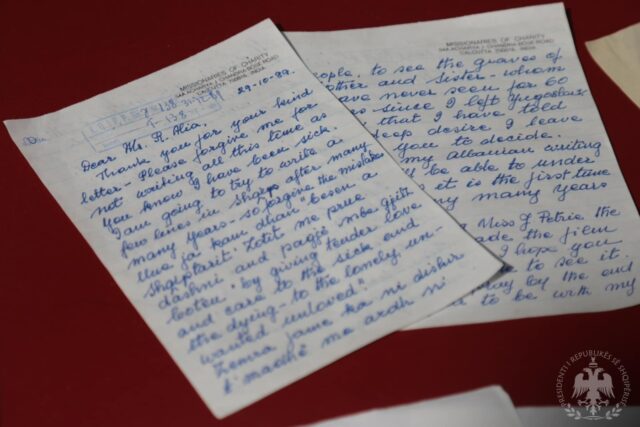 MISSIONARIES OF CHARITY
54A ACHARYA J. CHANDRA BOSE ROAD
CALCUTTA 700016 INDIA
29-10-89.
Dear Mr. R. Alia,
Thank you for your kind
letter - Please forgive me for
not writing all this time as
you know I have been sick.
I am going to try to write a
few lines in Shqip after many
many years - so forgive the mistakes
Une ja kam dhan "besen a
Shqiptarit" Zotit me prue
dashni and pagjë mbe gjith
boten "by giving tender love
and care to the sick and
the dying - to the lonely, un-
wanted unloved".
Zemra jame ka ni dishir
t'madhë me ardh ni
MISSIONARIES OF CHARITY
54A ACHARYA J. CHANDRA BOSE ROAD
CALCUTTA 700016 INDIA
people, to see the graves of
other and sister - whom
have never seen for 60
s since I left Yugoslavia
that I have told
deep desire I leave
you to decide.
my Albanian writing
y be able to under
it is the first time
many many years
Miss J Petrie the
ade the film
I hope you
to see it.
may by the end
to be with my
PRESIDENTI I REPUBLIKËS SË SHQIPËRISË